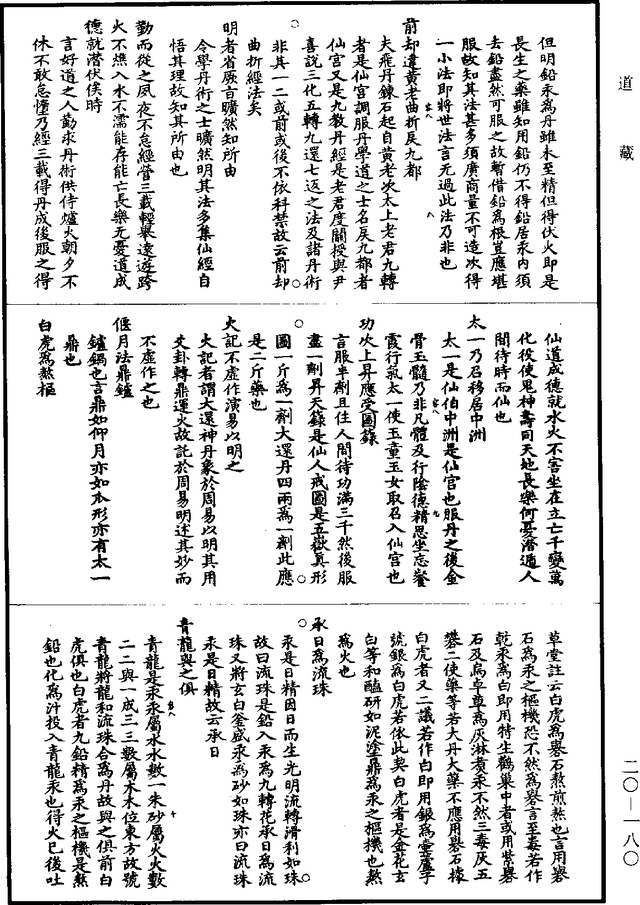 道藏
但明鉛汞為丹雖未至精但得伏火即是
長生之藥雖知用鉛仍不得鉛居汞內須
去鉛盡然可服之故暫借鉛為根豈應堪
服故知其法甚多須廣商量不可造次得
一小法即將世法言无過此法乃非也
前却違黃老曲折戾九都
夫飛丹鍊石起自黃老次太上老君九轉
者是仙宮調服丹學道之士名戾九都者
仙宮又是九教丹經是老君度關授與尹
喜說三化五轉九還七返之法及諸丹術
非其一二或前或後不依科禁故云前却
曲折經法矣
明者省厥言曠然知所由
令學丹術之士曠然明其法多集仙經自
悟其理故知其所由也
勤而從之夙夜不怠經營三載輕舉遠遊跨
火不燋入水不濡能存能亡長樂无憂道成
德就潛伏俟時
言好道之人勤求丹術供侍爐火朝夕不
休不敢怠憻乃經三載得丹成後服之得
仙道成德就水火不害坐在立亡千變萬
化役使鬼神壽同天地長樂何憂潛遁人
間待時而仙也
太一乃召移居中洲
太一是仙伯中洲是仙宮也服丹之後金
骨玉髓乃非凡體及行陰德精思坐忘餐
霞行氣太一使玉童玉女取召入仙宮也
功次上昇應受圖籙
言服半劑且住人間待功滿三千然後服
盡一劑昇天籙是仙人戒圖是五嶽真形
圖一斤為一劑大還丹四兩為一劑此應
是二斤藥也
火記不虛作演易以明之
火記者謂大還神丹象於周易以明其用
爻卦轉鼎運火故託於周易明述其妙而
不虛作之也
偃月法鼎爐
鑪鍋也言鼎如仰月亦如爪形亦有太一
鼎也
白虎為熬樞
草堂註云白虎為礜石熬煎熬也言用礜
石為汞之樞機恐不然為礜言至毒若作
乾汞為白即用特生鸛巢中者或用紫礜
石及烏卓尊為灰淋煮汞不然三毒灰五
礬二使藥等若大丹大藥不應用礜石樣
白虎者又二議若作白即用銀為臺廬子
號銀為白虎若依此契白虎者是金花玄
白等和醢研如泥塗鼎為汞之樞機也熬
為火也
汞日為流珠
汞是日精因日而生光明流轉滑利如珠
故曰流珠是鉛入汞為九轉花承日為流
珠又將玄白釜盛汞為砂如珠亦曰流珠
汞是日精故云承日
青龍與之俱
青龍是汞汞屬水水數一朱砂屬火火數
二二與一成三三數屬木木位東方故號
青龍將龍和流珠合為丹故與之俱前白
虎俱也白虎者九鉛精為汞之樞機是熬
鉛也化為汁投入青龍汞也得火已後吐
二〇—一八〇